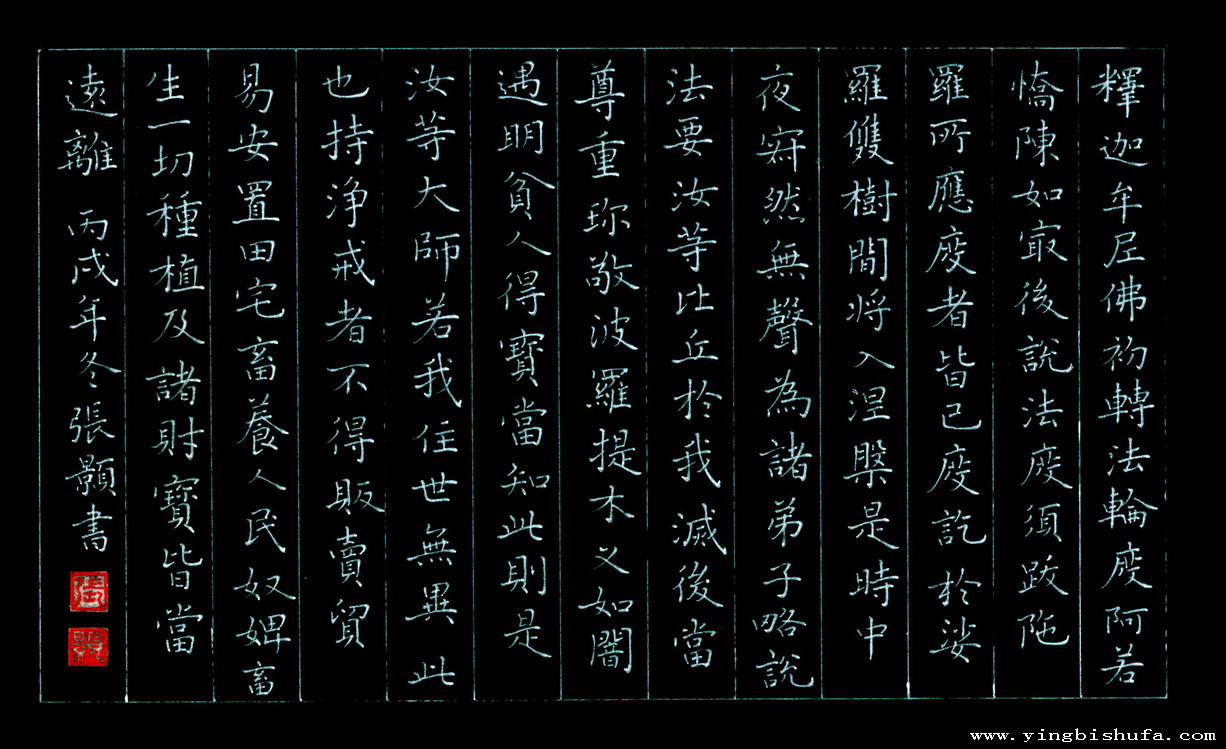 釋迦牟尼佛初轉法輪度阿若
憍陳如最後說法度須跋陁
羅所應度者皆已度訖於娑
羅雙樹間将入涅槃是時中
夜寂然無聲為諸弟子略說
法要汝等比丘於我滅後當
尊重珎敬波羅提木叉如闇
遇明貧人得寶當知此則是
汝等大師若我住世無異此
也持浄戒者不得販賣貿
易安置田宅畜養人民奴婢畜
生一切種植及諸財寶皆當
遠離 丙戌年冬張顥書
www.yingbishufa.com